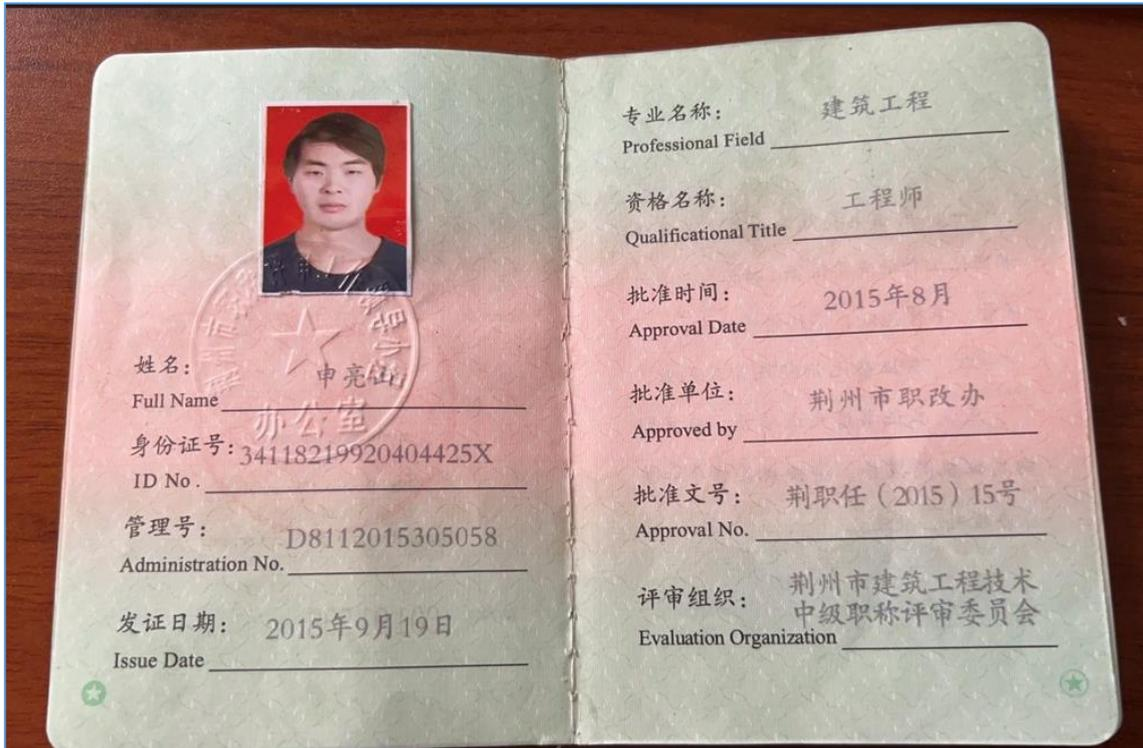 姓名：
申亮山
Full Name
身份证号：34118219920404425X
ID No.
管理号：
D8112015305058
Administration No.
发证日期： 2015年9月19日
Issue Date
办公室
专业名称： 建筑工程
Professional Field
资格名称： 工程师
Qualificational Title
批准时间： 2015年8月
Approval Date
批准单位： 荆州市职改办
Approved by
批准文号： 荆职任（2015）15号
Approval No.
评审组织： 荆州市建筑工程技术
中级职称评审委员会
Evaluation Organization